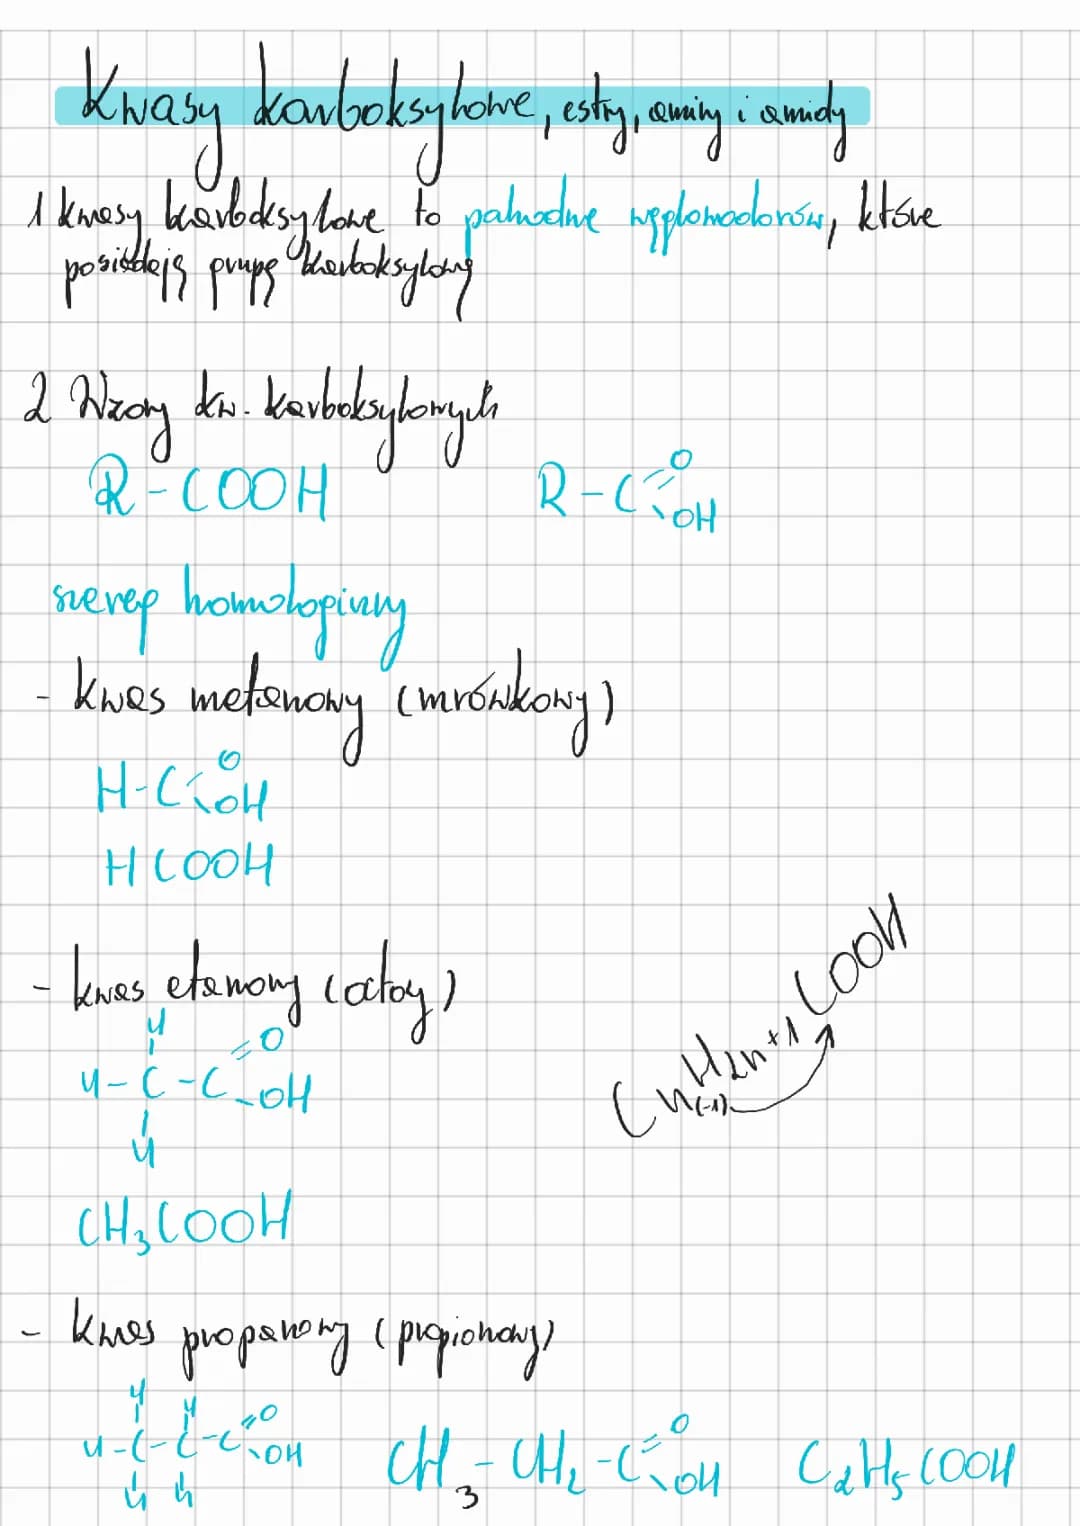 Kwasy karboksylowe, estry, aminy i amidy
1 kwasy karboksylowe to pochodne węglowodorów, które
posiadają grupę karboksylową
2 Wzory kw. karboksylowych
R-COOH R-C=O OH
szereg homologiczny
- kwas metanowy (mrówkowy)
H-C=O OH
HCOOH
- kwas etanowy (octowy)
H
H-C-C=O OH
H
CH3COOH
CnH2n+1COOH
(-1)
- kwas propanowy (propionowy)
H H
H-C-C-C=O OH CH3-CH2-C=O OH C2H5COOH
H H